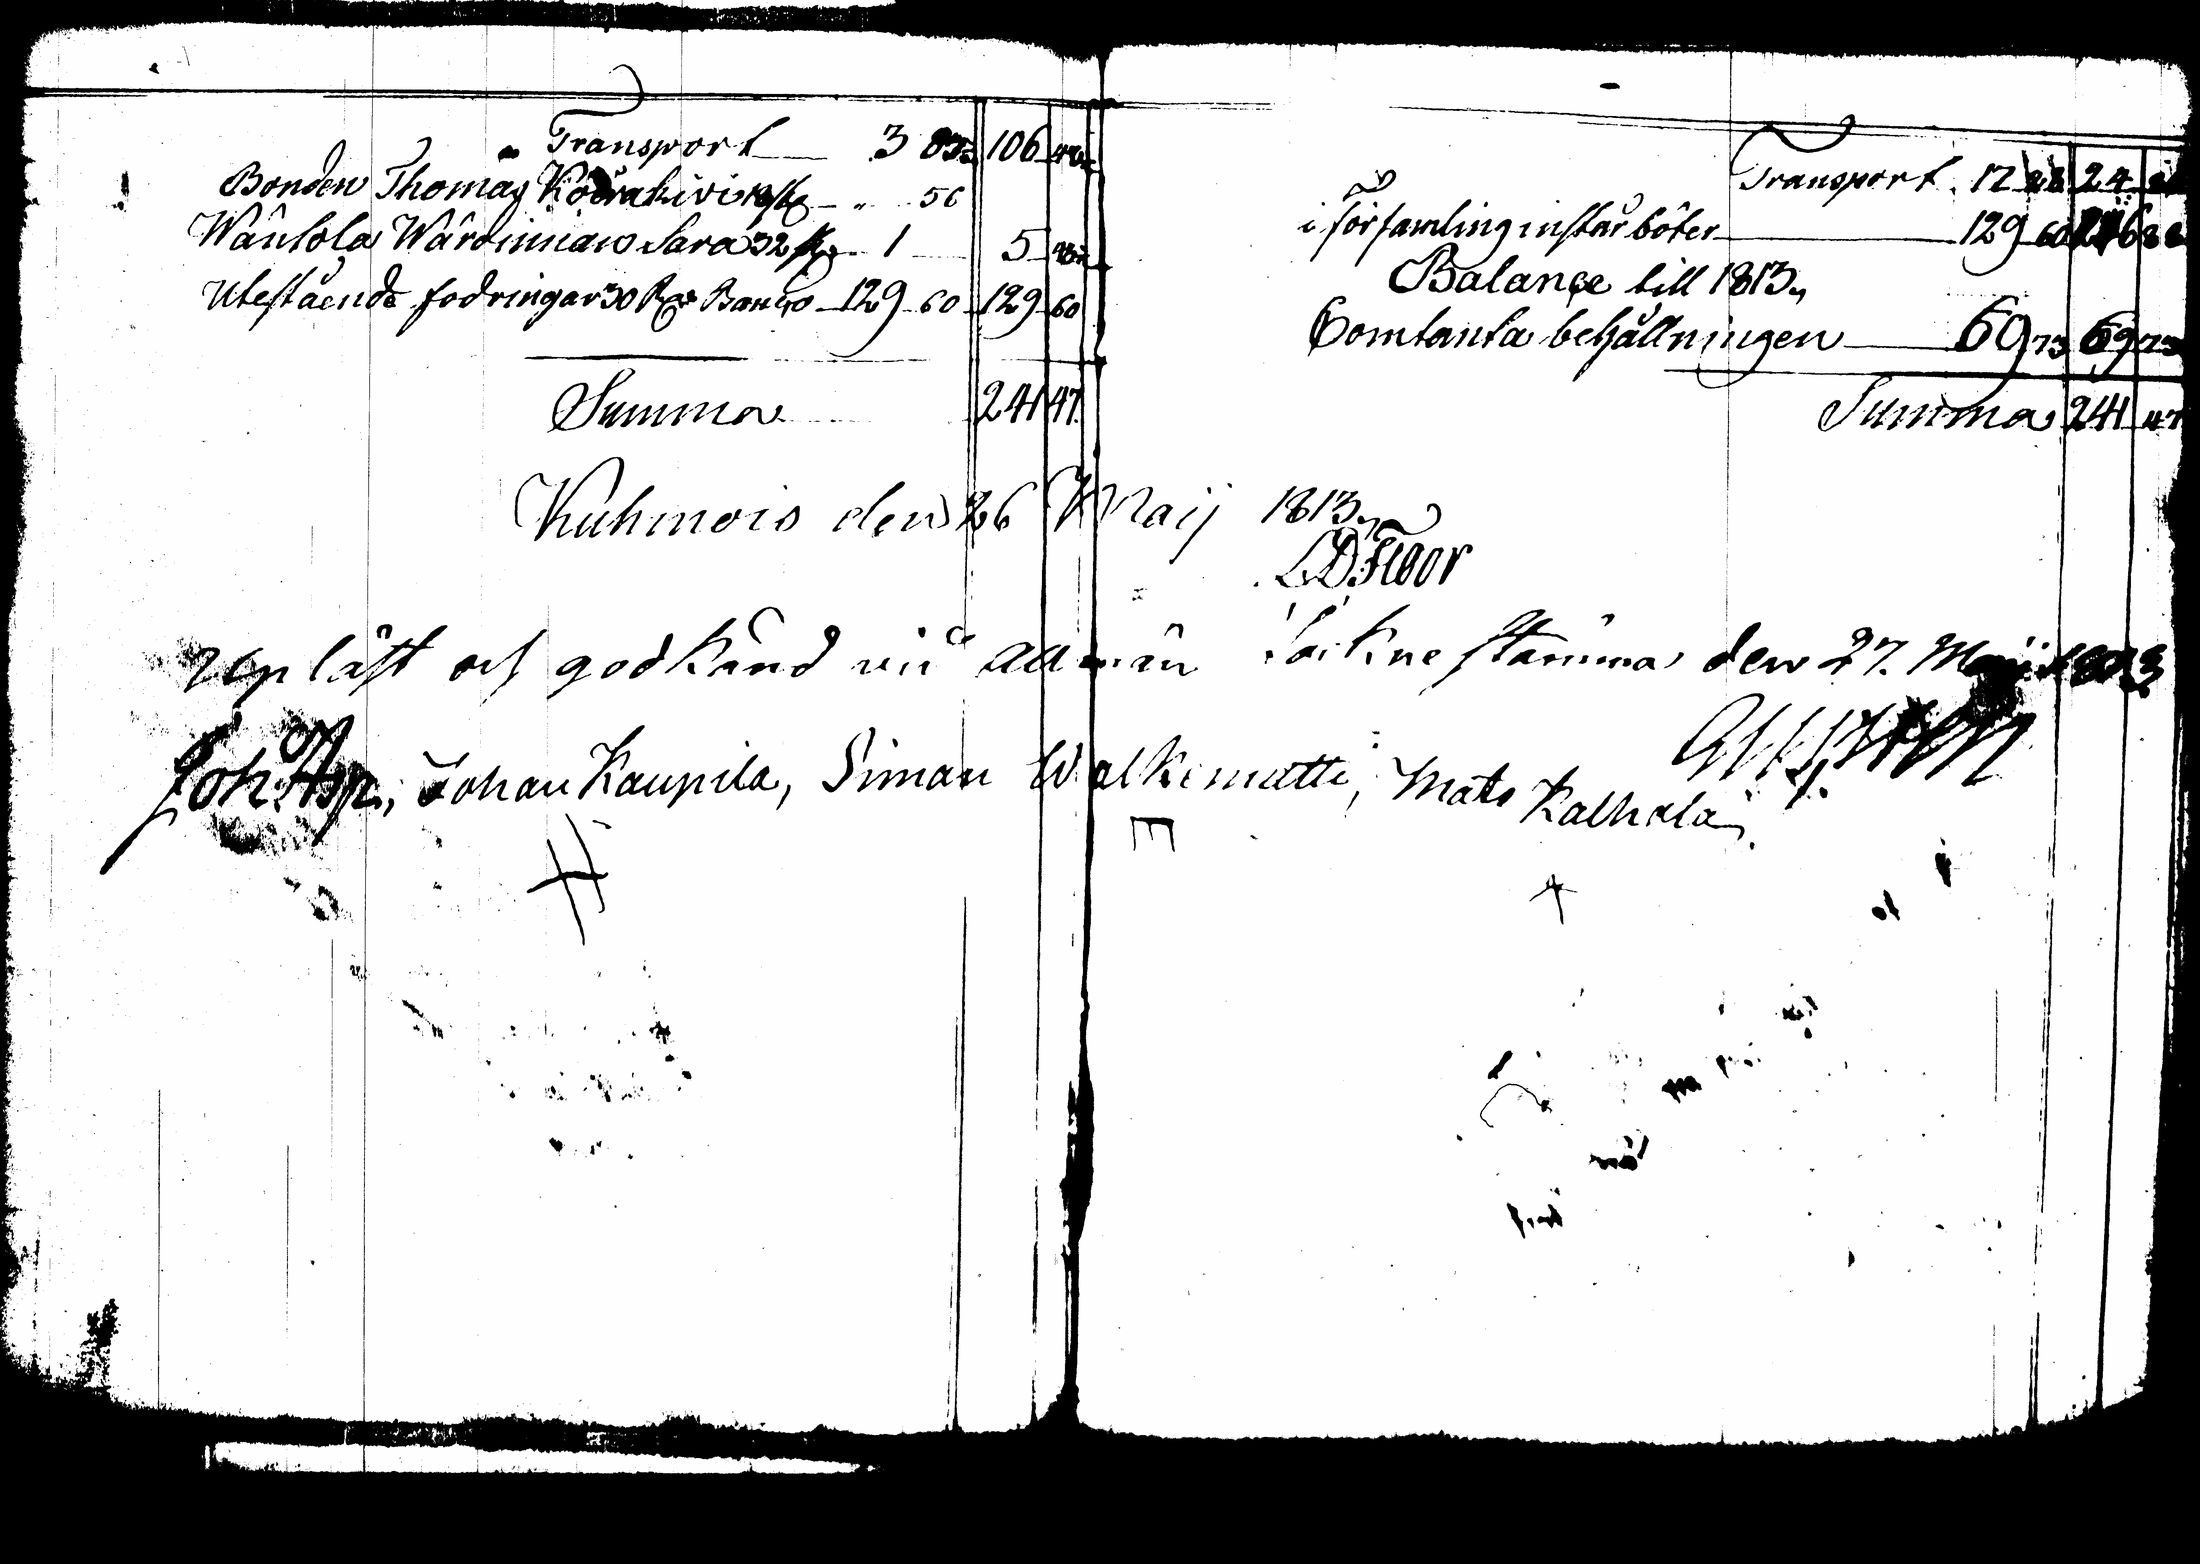 Transport 3 83 106
Bonden Thomas 56
Wärlola Sara 32 sk 1 5
Utestående fodringar 30 Rd Banco 129 60 129 60
Summa 241 47
Transport 12 24
i församling 129 60
Balance till 1813.
Comtanta behållningen 69 73 69 73
Summa 241 47
Kuhmois den 26 Maij 1813.
Upläst och godkänd vid allmän Sockne stämma den 27. Maij 1813
Joh: Asp, Johan Kaupila, Simon Walkematti, Mats